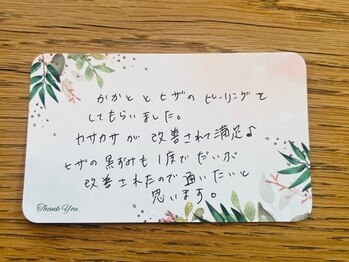 かかととヒザのピーリングを
してもらいました。
カサカサが改善されて満足♪。
ヒザの黒ずみも1度でだいぶ
改善されたので通いたいと
思います。
Thank You.